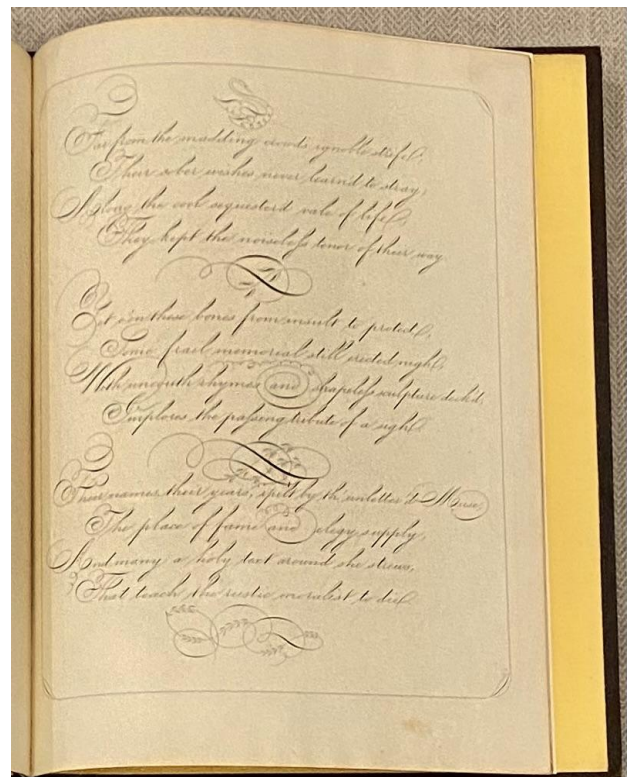 Far from the madding crowds ignoble strife,
Their sober wishes never learn'd to stray,
Along the cool sequesterd vale of life,
They kept the noiseless tenor of their way
Yet e'en these bones from insult to protect,
Some frail memorial still erected nigh,
With uncouth rhymes and shapeless sculpture deck'd,
Implores the passing tribute of a sigh
Their names their years, spelt by th'unletter'd Muse,
The place of fame and elegy supply,
And many a holy text around she strews,
That teach the rustic moralist to die